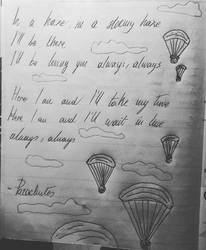 In a haze, in a stormy haze
I'll be there
I'll be loving you always, always
Here I am and I'll take my time
Here I am and I'll wait in line
always, always
- Parachutes